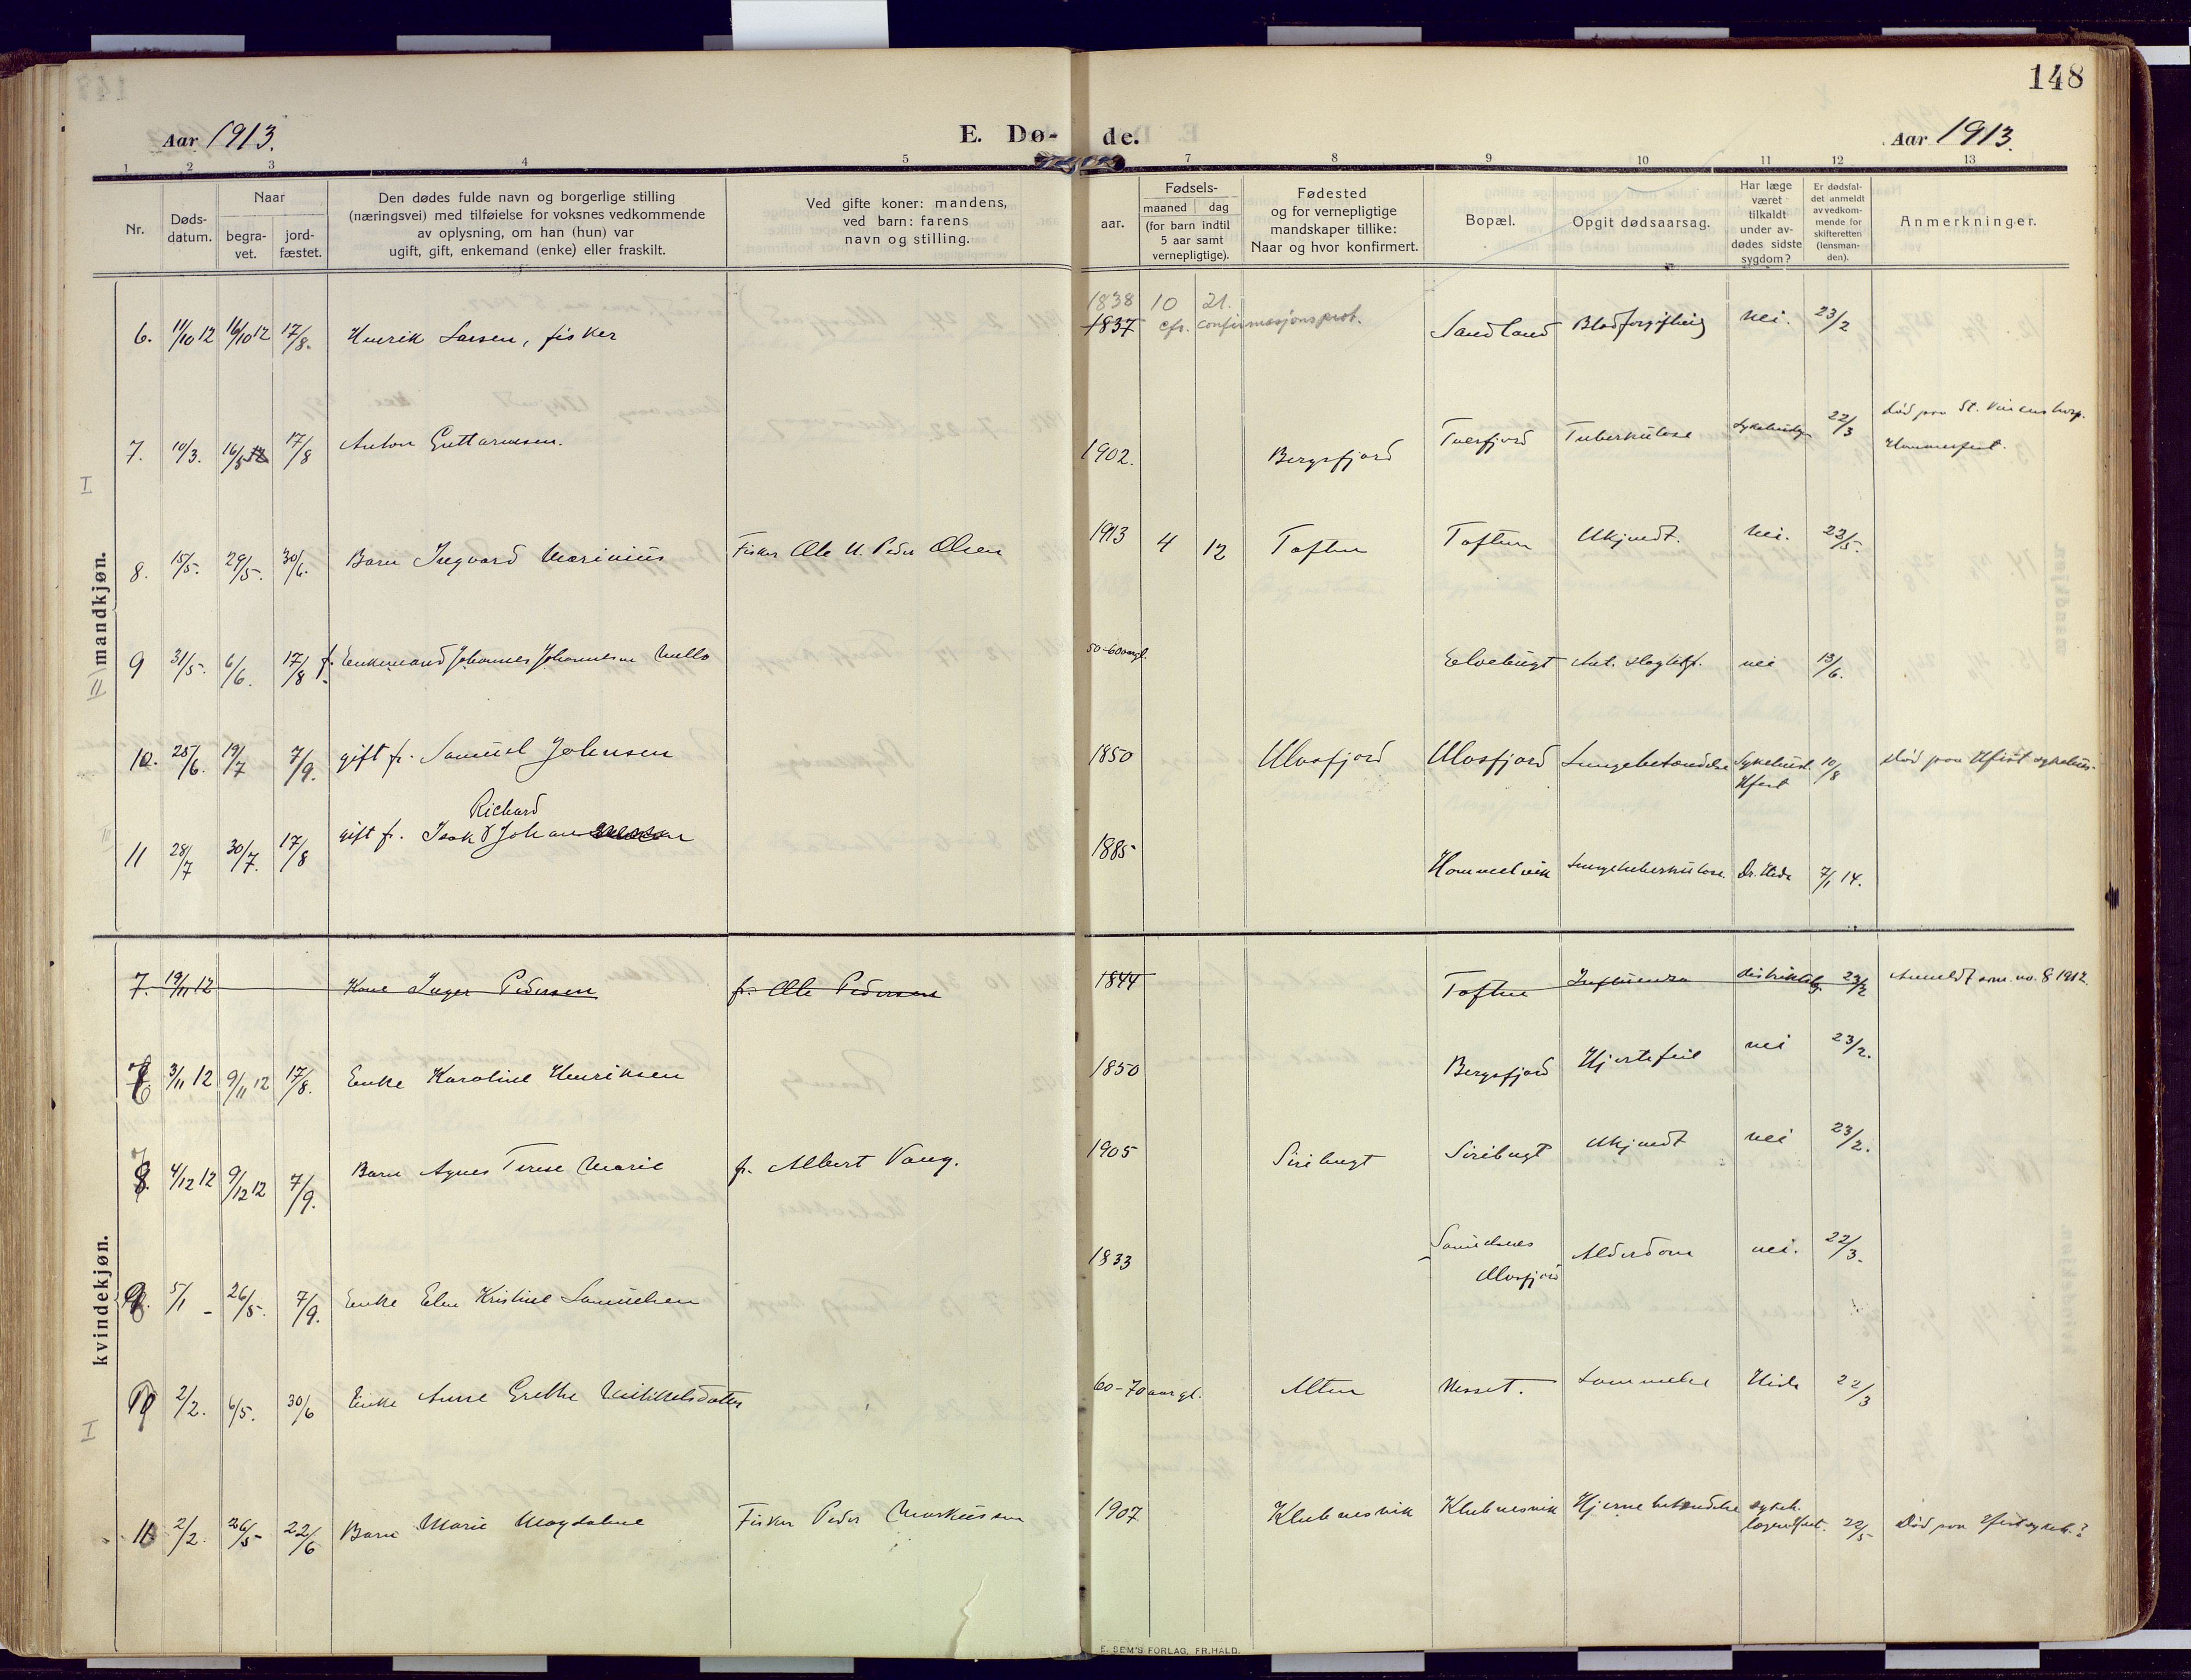 148
Aar 1913. E. Dø- de. Aar 1913.
1 2 3 4 5 7 8 9 10 11 12 13
Nr.
Døds-
datum.
Naar
begra-
vet.
jord-
fæstet.
Den dødes fulde navn og borgerlige stilling
(næringsvei) med tilføielse for voksnes vedkommende
av oplysning, om han (hun) var
ugift, gift, enkemand (enke) eller fraskilt.
Ved gifte koner: mandens,
ved barn: farens
navn og stilling.
aar.
Fødsels-
maaned dag
(for barn indtil
5 aar samt
vernepligtige).
Fødested
og for vernepligtige
mandskaper tillike:
Naar og hvor konfirmert.
Bopæl.
Opgit dødsaarsag.
Har læge
været
tilkaldt
under av-
dødes sidste
sygdom?
Er dødsfal-
det anmeldt
av vedkom-
mende for
skifteretten
(lensman-
den).
Anmerkninger.
mandkjøn.
1838 10 21.
6. 11/10 12 16/10 12 17/8. Henrik Larsen, fisker 1837 cfr. confirmasjonsprot. Sandland Blodforgiftning nei. 23/2
7. 10/3. 16/5 17/8 Anton Guttormsen. 1902. Bergsfjord Tuesfjord Tuberkulose 22/3 død paa St. Vincens hosp.
Hammerfest.
8. 15/5. 29/5. 30/6. Barn Ingvard Marinius Fisker Ole N. Peder Olsen 1913 4 12 Toften Toften Ukjendt. Nei. 23/5.
9 31/5. 6/6. 17/8 f. Enkemand Johannes Johannesen 50-60 aar gl. Eelvebugt Ant. slagtilf. nei 13/6.
10. 25/6. 19/7 7/9. gift fr. Samuel Johnsen 1850 Ulvsfjord Ulvsfjord Lungebetændelse Sykehusl. 10/8 død paa Hfest sykehus.
Hfest
Richard
11 28/7 30/7. 17/8 gift fr. Isak Johansen 1885 Hommelvik Lungetuberkulose. Dr. Hede 7/1 14.
kvindekjøn.
7. 19/11 12 Kone Inger Pedersen fr. Ole Pedersen 1844 Toften Influensa distriktslg. 23/2 Anmeldt som no. 8 1912.
6 3/11 12 9/11 12 17/8. Enke Karoline Henriksen 1850 Bergsfjord Hjertefeil nei 23/2.
7 4/12 12 9/12 12 7/9. Barn Agnes Terese Marie fr. Albert Vang. 1905 Siribugt Siribugt Ukjendt nei 23/2.
8. 5/1 - 26/5. 7/9. Enke Elen Kristine Samuelsen 1833 Samuelsnes Alderdom nei. 22/3.
Ulvsfjord
9 2/2. 6/5. 30/6 Enke Anne Grethe Mikkelsdatter 60-70 aar gl. Alten Nesset. Lammelse Hede 22/3
10 2/2. 26/5 22/6 Barn Marie Magdalene Fisker Peder Markussen 1907 Klubnesvik Klubnesvik Hjernebetændelse sykeh.
lægen Hfest. 22/5 Død paa Hfest sykeh.?
E. SEM'S FORLAG, FR.HALD.